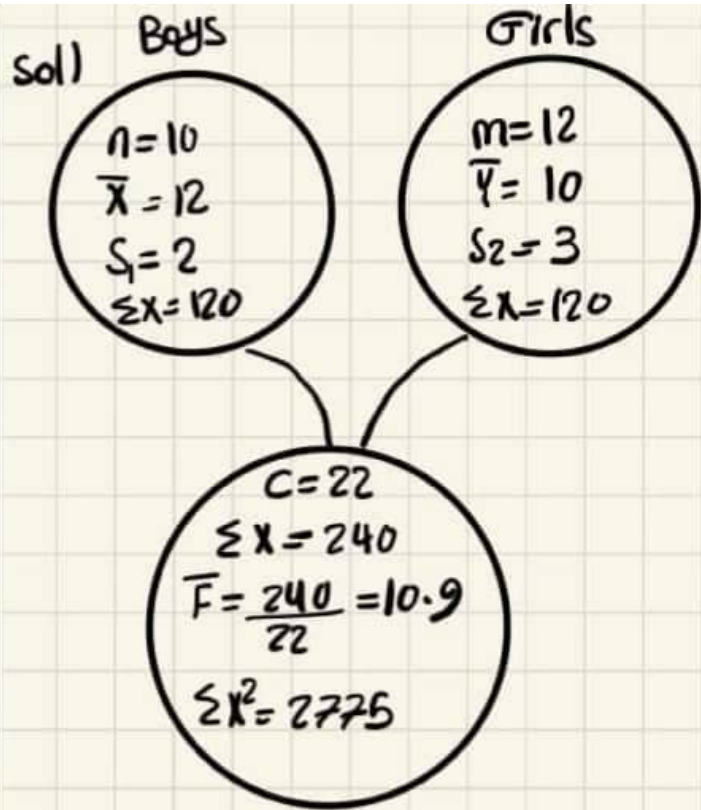 Sol)
Boys
n=10
X̅ = 12
S₁= 2
Σx= 120
Girls
m=12
Y̅= 10
S2= 3
Σx=120
C=22
Σx= 240
F̅= 240/22 =10.9
Σx²= 2775